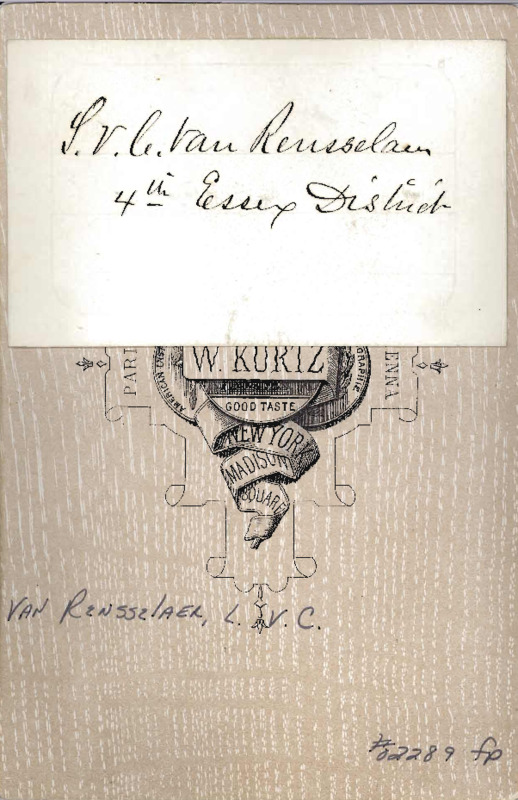 S. V. C. Van Rensselaer
4th Essex District
PARI
ENNA
AMERICAN INST
GRAPHIE
W. KURTZ
GOOD TASTE
NEW YORK
MADISON
SQUARE
VAN RENSSELAER, L. V. C.
#02289 fp